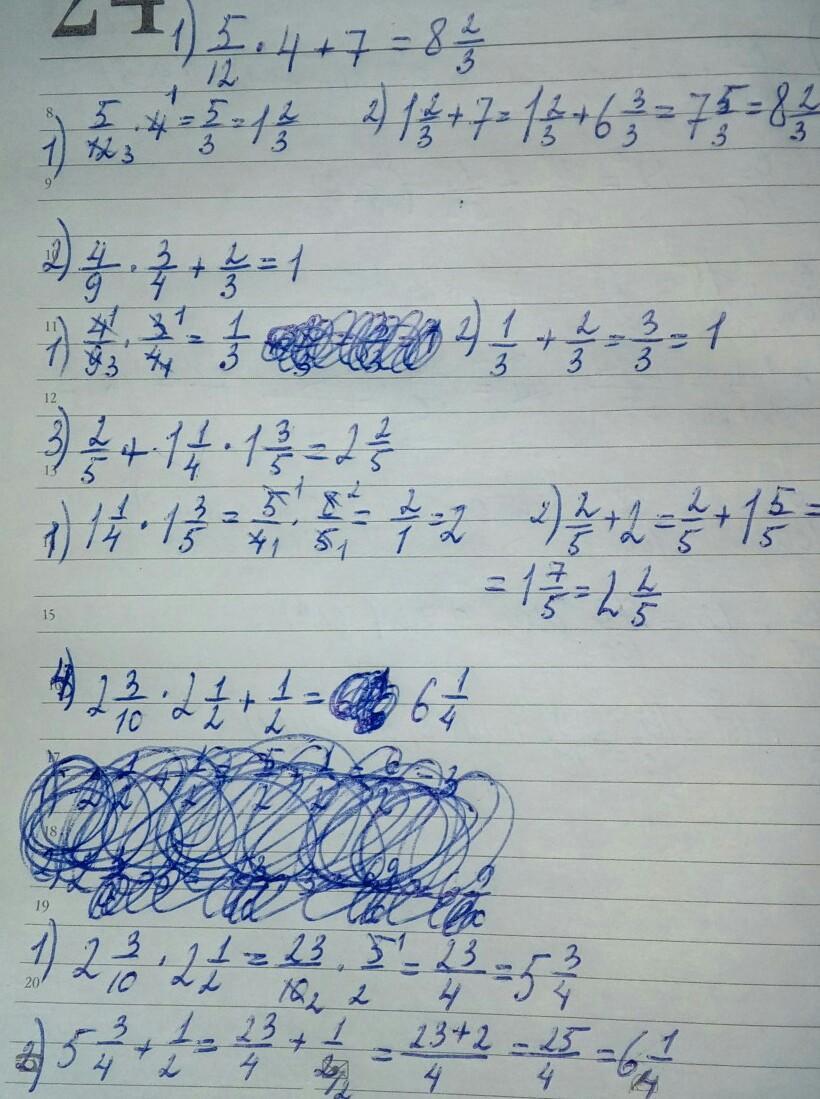 24
1) 5/12 · 4 + 7 = 8 2/3
8
1) 5/12 3 · 4 1 = 5/3 = 1 2/3 2) 1 2/3 + 7 = 1 2/3 + 6 3/3 = 7 5/3 = 8 2/3
9
2) 4/9 · 3/4 + 2/3 = 1
11
1) 4 1/9 3 · 3 1/4 1 = 1/3 2) 1/3 + 2/3 = 3/3 = 1
12
3) 2/5 + 1 1/4 · 1 3/5 = 2 2/5
13
1) 1 1/4 · 1 3/5 = 5 1/4 1 · 8 2/5 1 = 2/1 = 2 2) 2/5 + 2 = 2/5 + 1 5/5 =
= 1 7/5 = 2 2/5
15
4) 2 3/10 · 2 1/2 + 1/2 = 6 1/4
17
18
19
1) 2 3/10 · 2 1/2 = 23/10 2 · 5 1/2 = 23/4 = 5 3/4
20
2) 5 3/4 + 1/2 = 23/4 + 1/2 /2 = 23+2/4 = 25/4 = 6 1/4